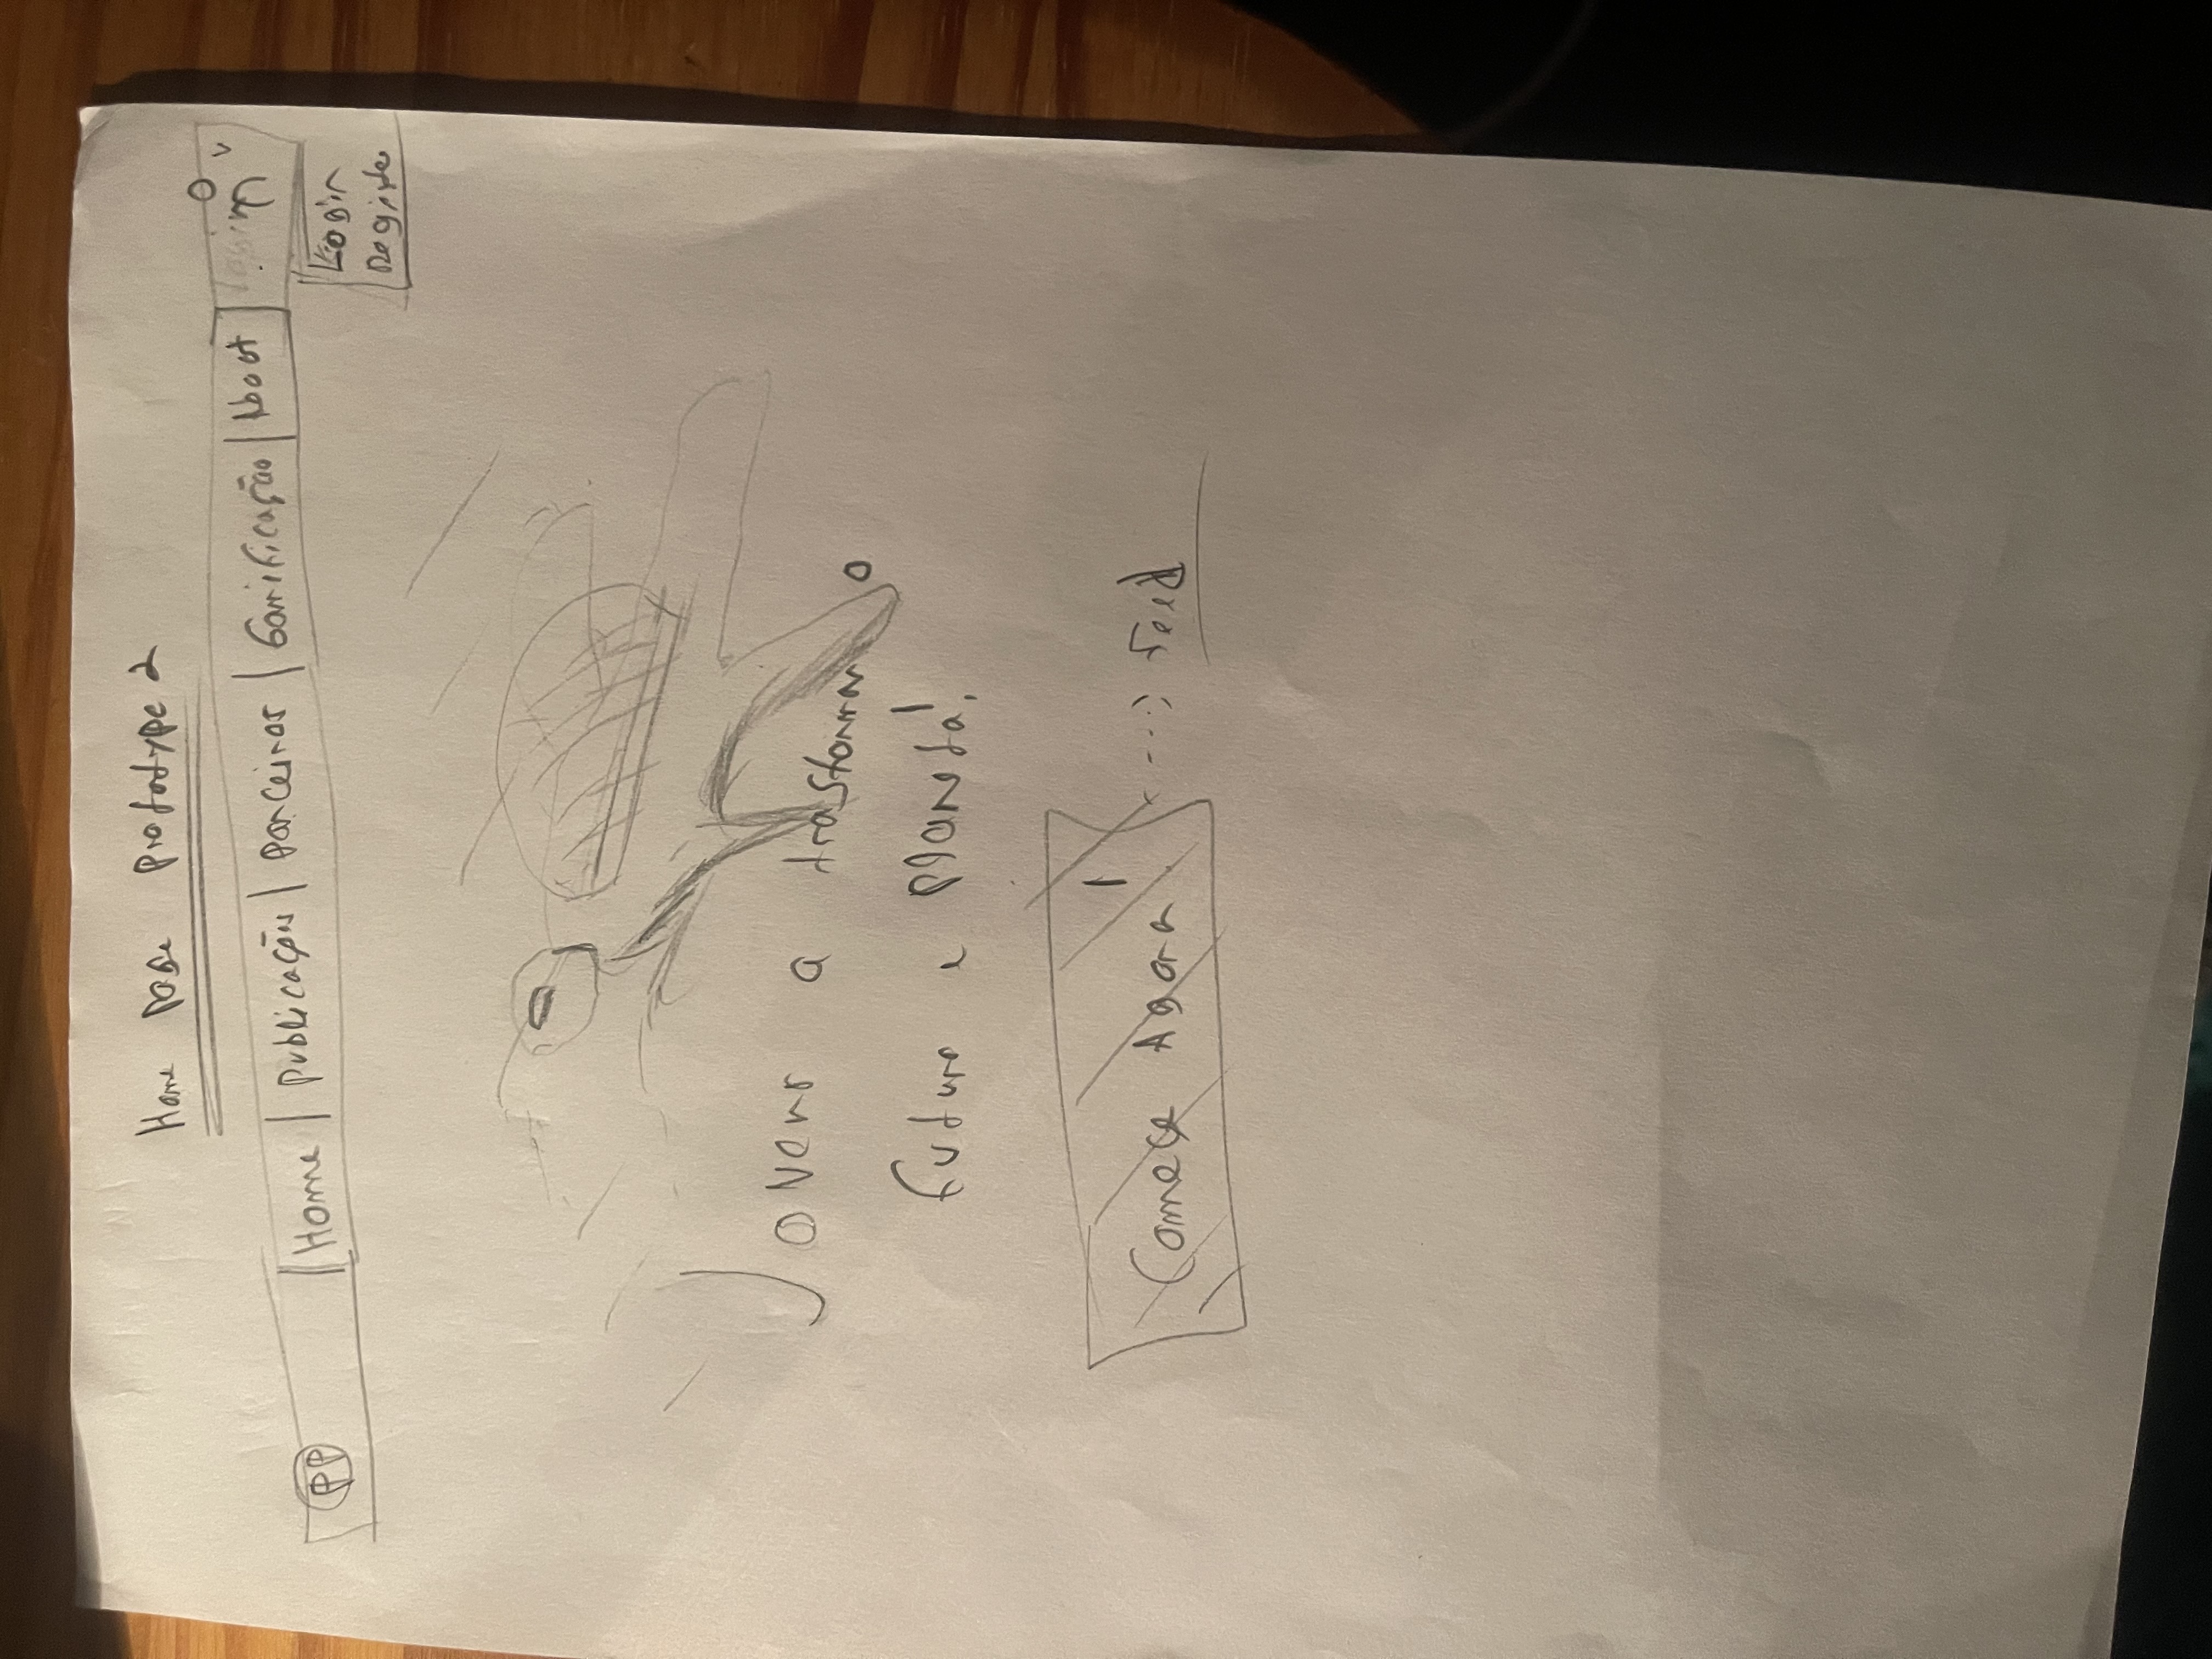 Home Page Prototype 2
PP | Home | Publicações | Parceiros | Gamificação | About
Login
Register
Jovens a trasformar o
futuro e Planeta!
Comece Agora! ---> Feed